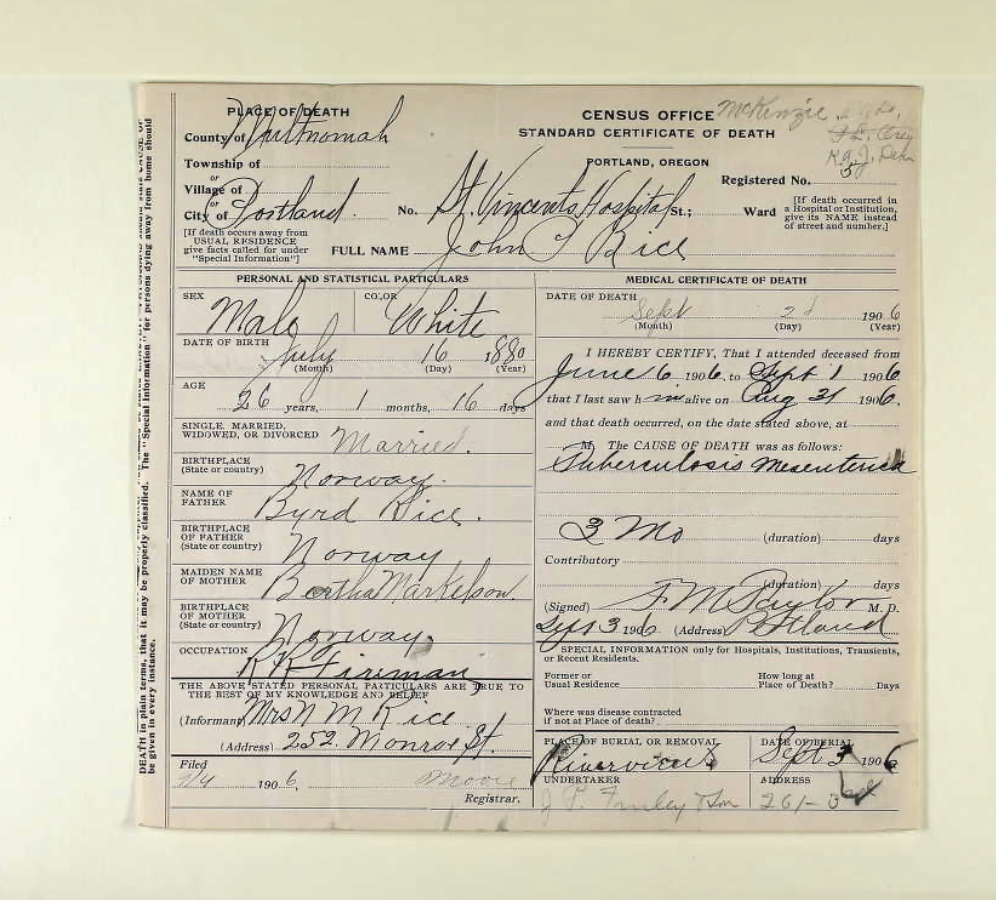 PLACE OF DEATH
County of Multnomah
Township of
or
Village of
or
City of Portland.
[If death occurs away from
USUAL RESIDENCE
give facts called for under
"Special Information"]
CENSUS OFFICE McKenzie
STANDARD CERTIFICATE OF DEATH
PORTLAND, OREGON
Registered No. 5
No. St. Vincents Hospital St.; Ward
[If death occurred in
a Hospital or Institution,
give its NAME instead
of street and number.]
FULL NAME John T Rice
PERSONAL AND STATISTICAL PARTICULARS
SEX
Male
COLOR
White
DATE OF BIRTH
July 16 1880
(Month) (Day) (Year)
AGE
26 years, 1 months, 16 days
SINGLE, MARRIED,
WIDOWED, OR DIVORCED Married.
BIRTHPLACE
(State or country) Norway.
NAME OF
FATHER Byrd Rice.
BIRTHPLACE
OF FATHER
(State or country) Norway
MAIDEN NAME
OF MOTHER Bertha Markelson.
BIRTHPLACE
OF MOTHER
(State or country) Norway.
OCCUPATION
RR Fireman
THE ABOVE STATED PERSONAL PARTICULARS ARE TRUE TO
THE BEST OF MY KNOWLEDGE AND BELIEF
(Informant Mrs N M Rice
(Address) 252. Monroe St.
Filed
9/4 1906, Moore
Registrar.
MEDICAL CERTIFICATE OF DEATH
DATE OF DEATH
Sept 2d 1906
(Month) (Day) (Year)
I HEREBY CERTIFY, That I attended deceased from
June 6 1906, to Sept 1 1906
that I last saw h im alive on Aug 31 1906.
and that death occurred, on the date stated above, at
M. The CAUSE OF DEATH was as follows:
Tuberculosis Mesenterica
3 Mo (duration) days
Contributory
(duration) days
(Signed) F. M. Taylor M. D.
Sept 3 1906 (Address) Portland
SPECIAL INFORMATION only for Hospitals, Institutions, Transients,
or Recent Residents.
Former or
Usual Residence
How long at
Place of Death? Days
Where was disease contracted
if not at Place of death?
PLACE OF BURIAL OR REMOVAL
Riverview
DATE OF BURIAL
Sept 5 1906
UNDERTAKER
J. P. Finley & Son
ADDRESS
261-3
DEATH in plain terms, that it may be properly classified. The "Special Information" for persons dying away from home should
be given in every instance.